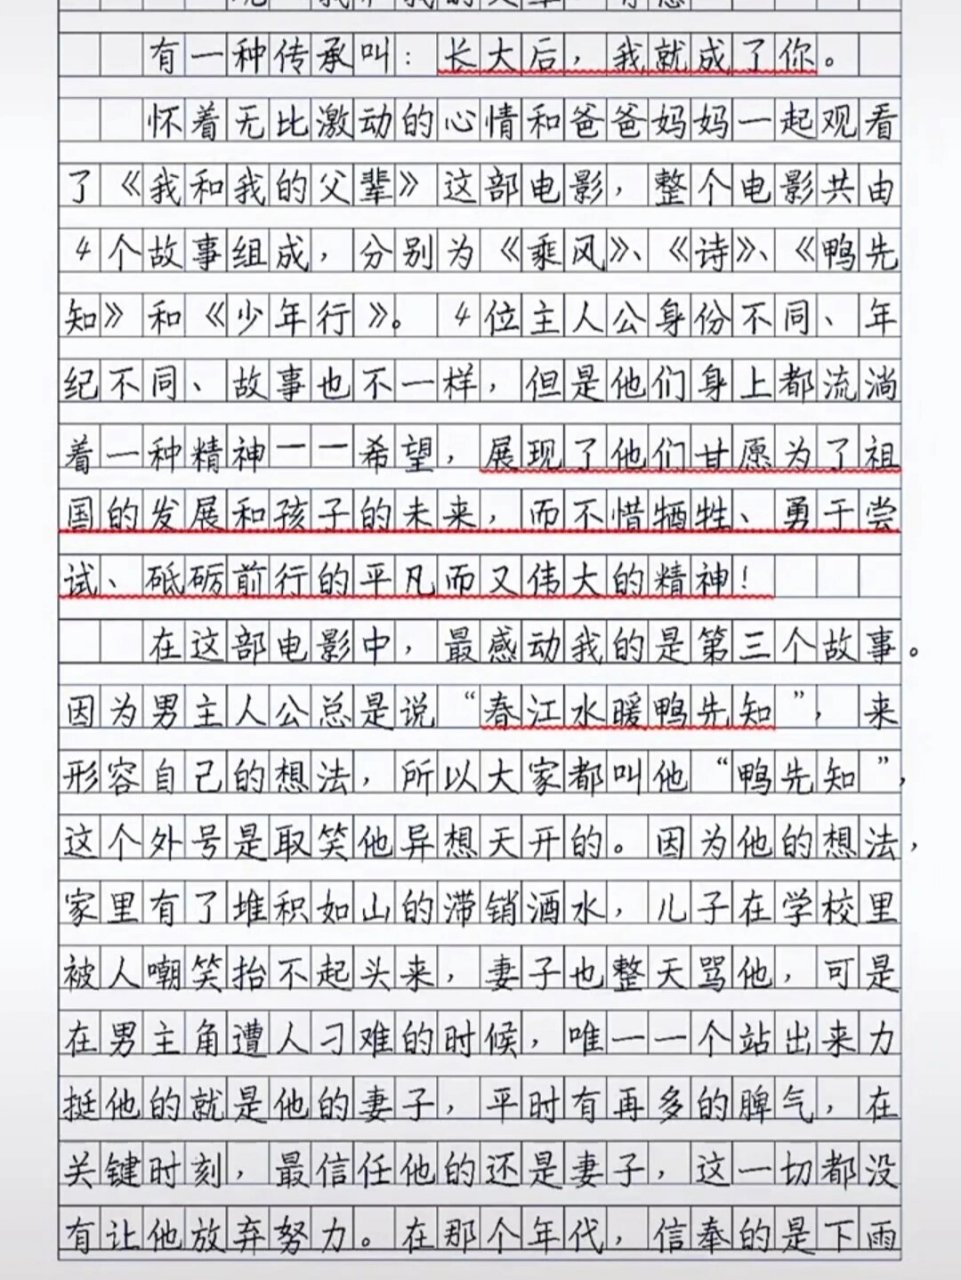 有一种传承叫：长大后，我就成了你。
怀着无比激动的心情和爸爸妈妈一起观看
了《我和我的父辈》这部电影，整个电影共由
4个故事组成，分别为《乘风》、《诗》、《鸭先
知》和《少年行》。4位主人公身份不同、年
纪不同、故事也不一样，但是他们身上都流淌
着一种精神——希望，展现了他们甘愿为了祖
国的发展和孩子的未来，而不惜牺牲、勇于尝
试、砥砺前行的平凡而又伟大的精神！
在这部电影中，最感动我的是第三个故事。
因为男主人公总是说“春江水暖鸭先知”，来
形容自己的想法，所以大家都叫他“鸭先知”，
这个外号是取笑他异想天开的。因为他的想法，
家里有了堆积如山的滞销酒水，儿子在学校里
被人嘲笑抬不起头来，妻子也整天骂他，可是
在男主角遭人刁难的时候，唯一一个站出来力
挺他的就是他的妻子，平时有再多的脾气，在
关键时刻，最信任他的还是妻子，这一切都没
有让他放弃努力。在那个年代，信奉的是下雨